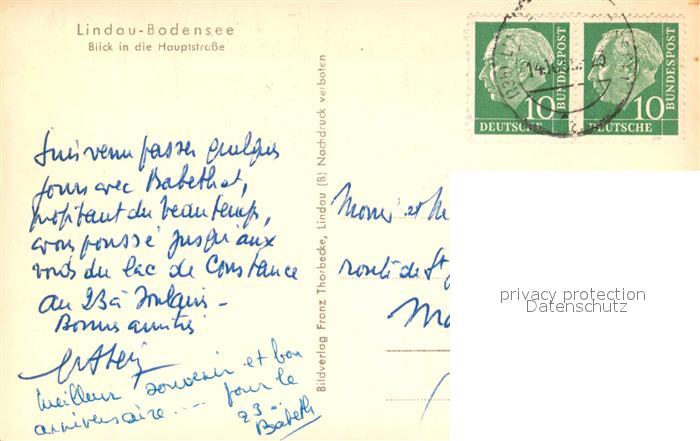 Lindau-Bodensee
Blick in die Hauptstraße
DEUTSCHE BUNDESPOST 10
DEUTSCHE BUNDESPOST 10
Suis venu passer quelques
jours avec Babeth et,
profitant du beau temps,
avons poussé jusqu'aux
bords du lac de Constance
au 23 à
Bonnes amitiés
Meilleur souvenir et bon
anniversaire.... pour le
23 -
Babeth
Bildverlag Franz Thorbecke, Lindau (B) Nachdruck verboten
et
route de St
privacy protection
Datenschutz